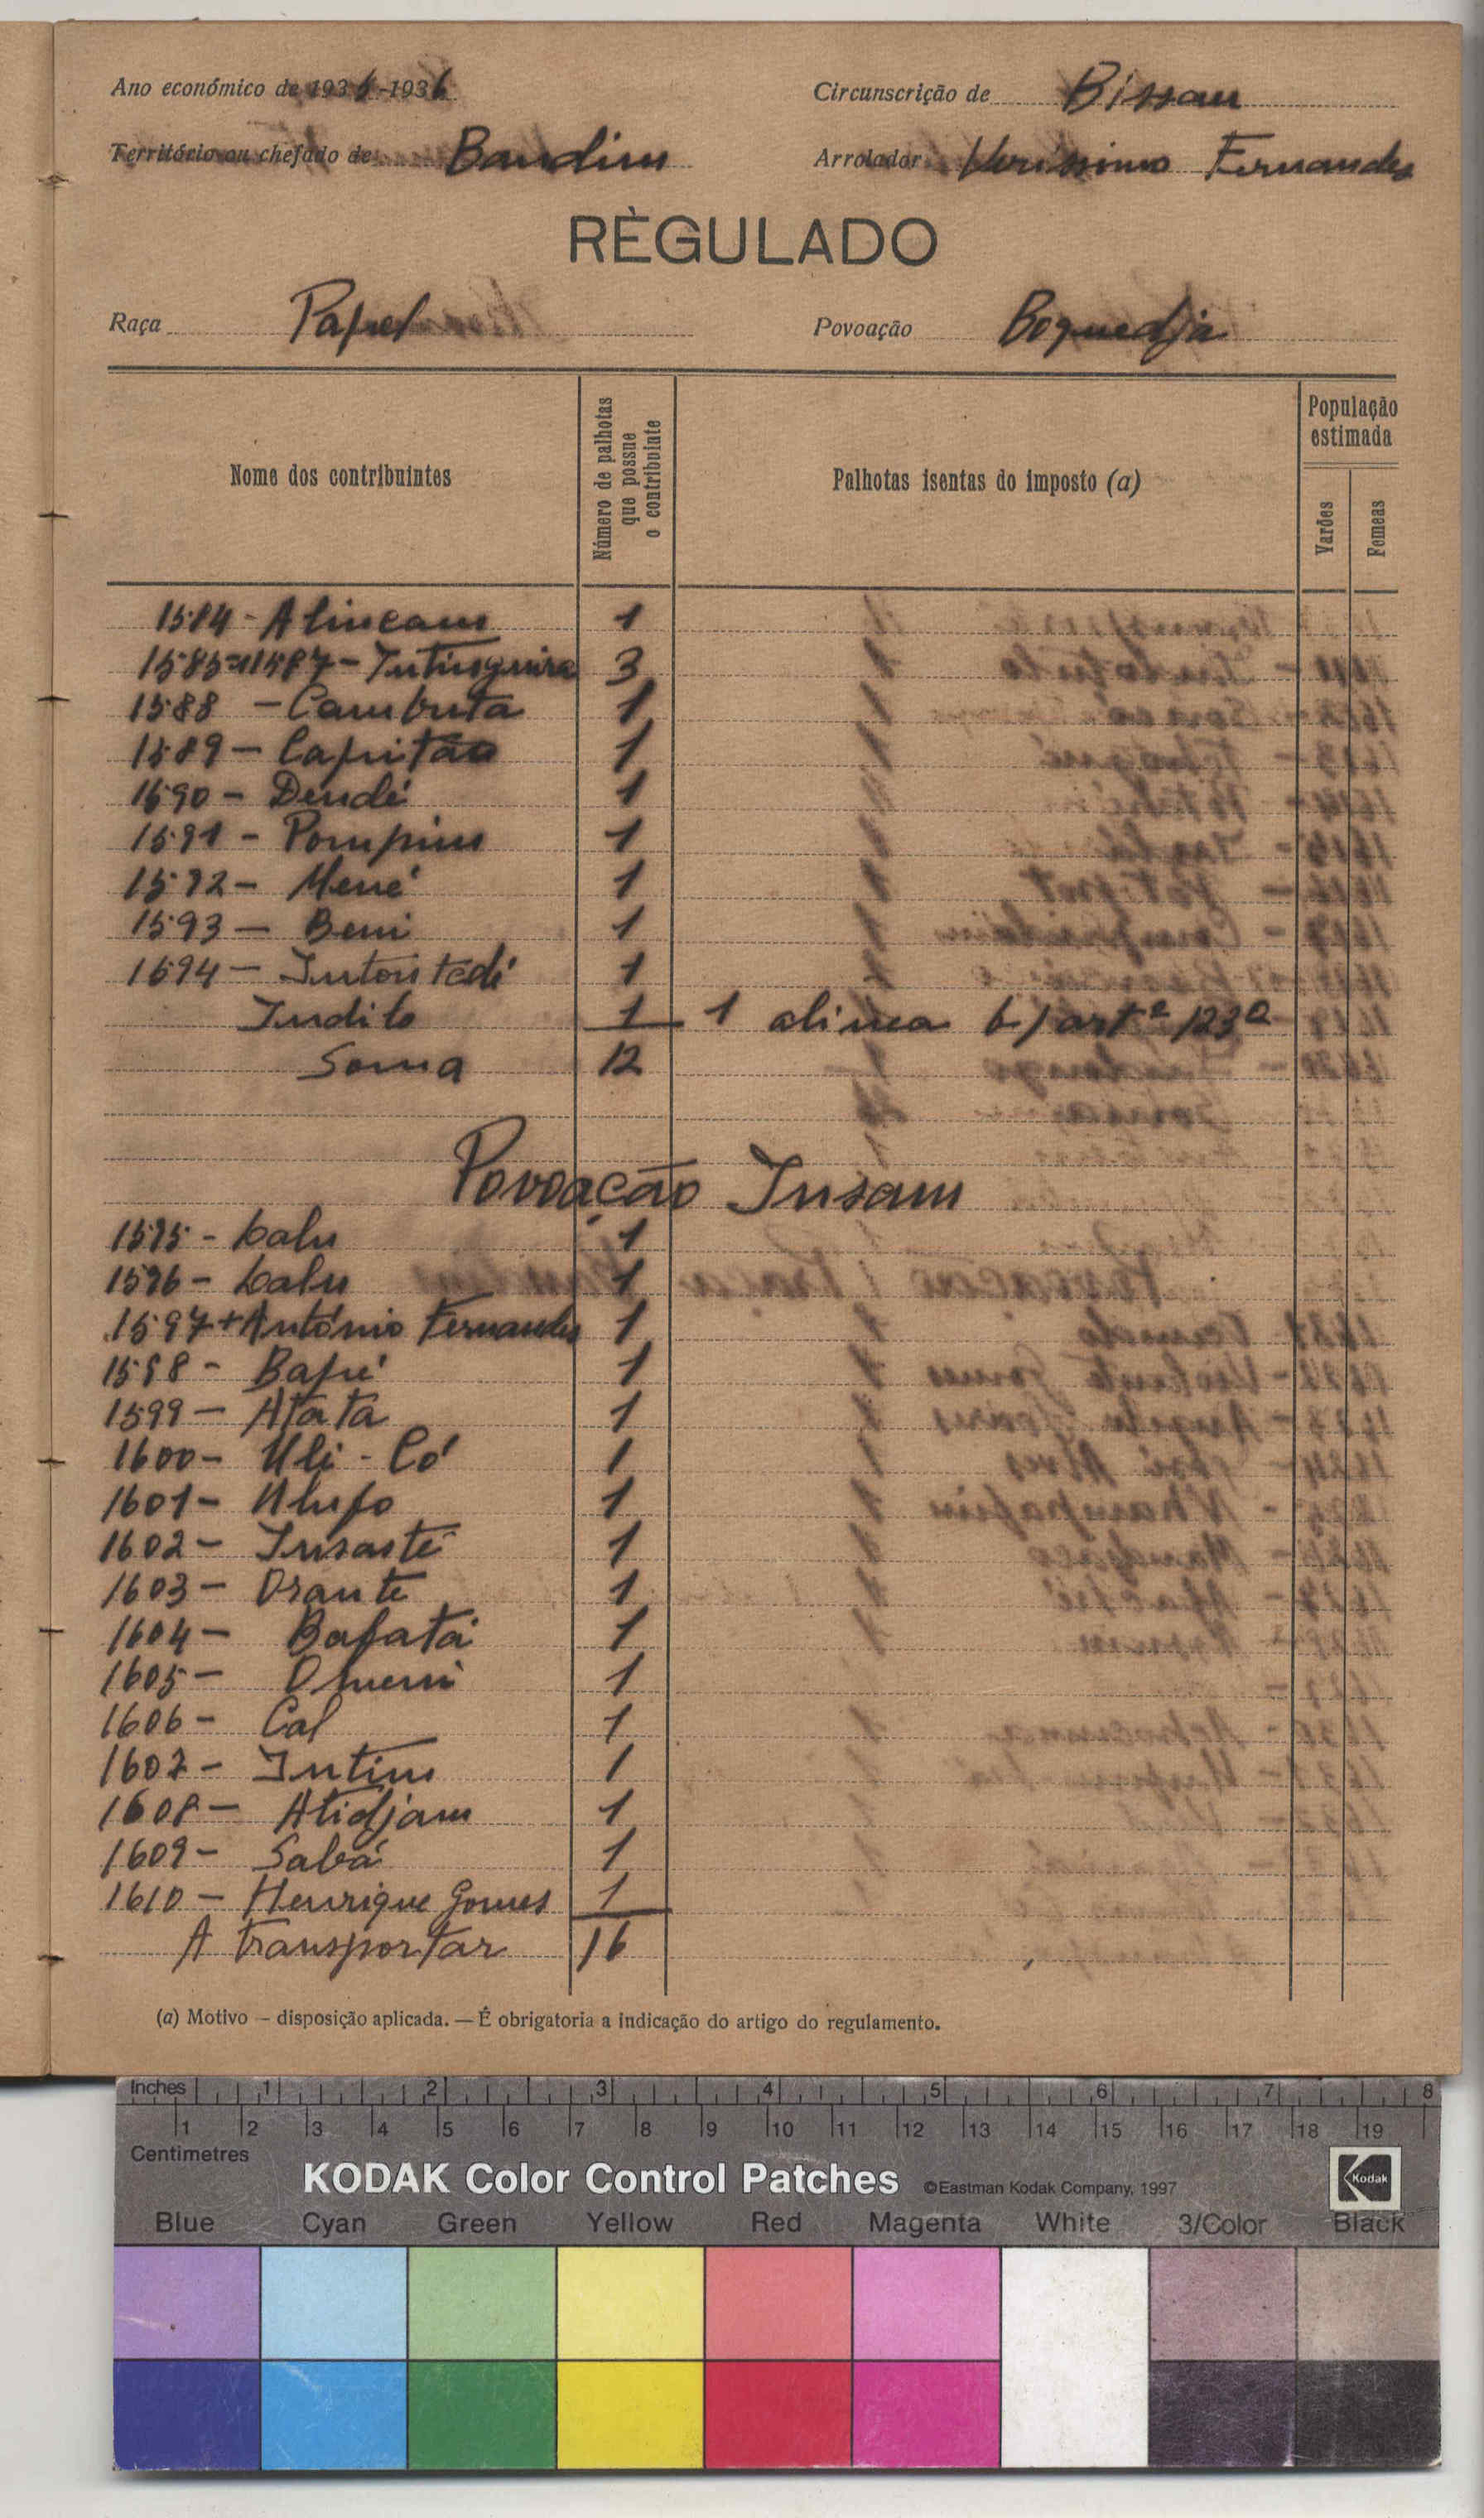 Ano económico de 1935-1936
Circunscrição de Bissau
Território ou chefado de Bandim
Arrolador Verissimo Fernandes
RÈGULADO
Raça Papel
Povoação Boquedja
Nome dos contribuintes
Número de palhotas que possue o contribuinte
Palhotas isentas do imposto (a)
População estimada
Varões
Femeas
1584 - Alincam 1
1585 a 1587 - Intinguira 3
1588 - Cambuta 1
1589 - Capitão 1
1590 - Dendé 1
1591 - Pompim 1
1592 - Mené 1
1593 - Beni 1
1594 - Intontedé 1
Indito 1 1 alinea b) artº 123º
Soma 12
Povoação Insam
1595 - Lalu 1
1596 - Lalu 1
1597 + António Fernandes 1
1598 - Bapé 1
1599 - Atata 1
1600 - Uli - Có 1
1601 - Ulufo 1
1602 - Insasté 1
1603 - Orante 1
1604 - Bafatá 1
1605 - 1
1606 - Cal 1
1607 - Intim 1
1608 - Atidjam 1
1609 - Sabá 1
1610 - Henrique Gomes 1
A transportar 16
(a) Motivo — disposição aplicada. — É obrigatoria a indicação do artigo do regulamento.
Inches 1 2 3 4 5 6 7 8
1 2 3 4 5 6 7 8 9 10 11 12 13 14 15 16 17 18 19
Centimetres
KODAK Color Control Patches ©Eastman Kodak Company, 1997 Kodak
Blue Cyan Green Yellow Red Magenta White 3/Color Black